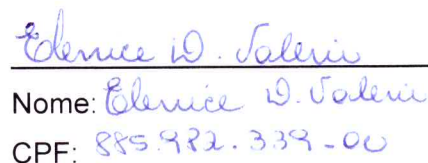 Elenice D. Valerii
Nome: Elenice D. Valerii
CPF: 885.982.339-00